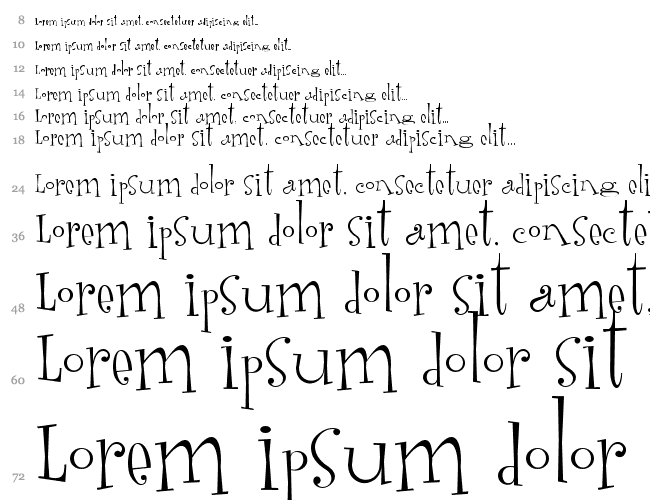 8 Lorem ipsum dolor sit amet, consectetuer adipiscing elit...
10 Lorem ipsum dolor sit amet, consectetuer adipiscing elit...
12 Lorem ipsum dolor sit amet, consectetuer adipiscing elit...
14 Lorem ipsum dolor sit amet, consectetuer adipiscing elit...
16 Lorem ipsum dolor sit amet, consectetuer adipiscing elit...
18 Lorem ipsum dolor sit amet, consectetuer adipiscing elit...
24 Lorem ipsum dolor sit amet, consectetuer adipiscing eli
36 Lorem ipsum dolor sit amet, consecte
48 Lorem ipsum dolor sit amet,
60 Lorem ipsum dolor sit
72 Lorem ipsum dolor